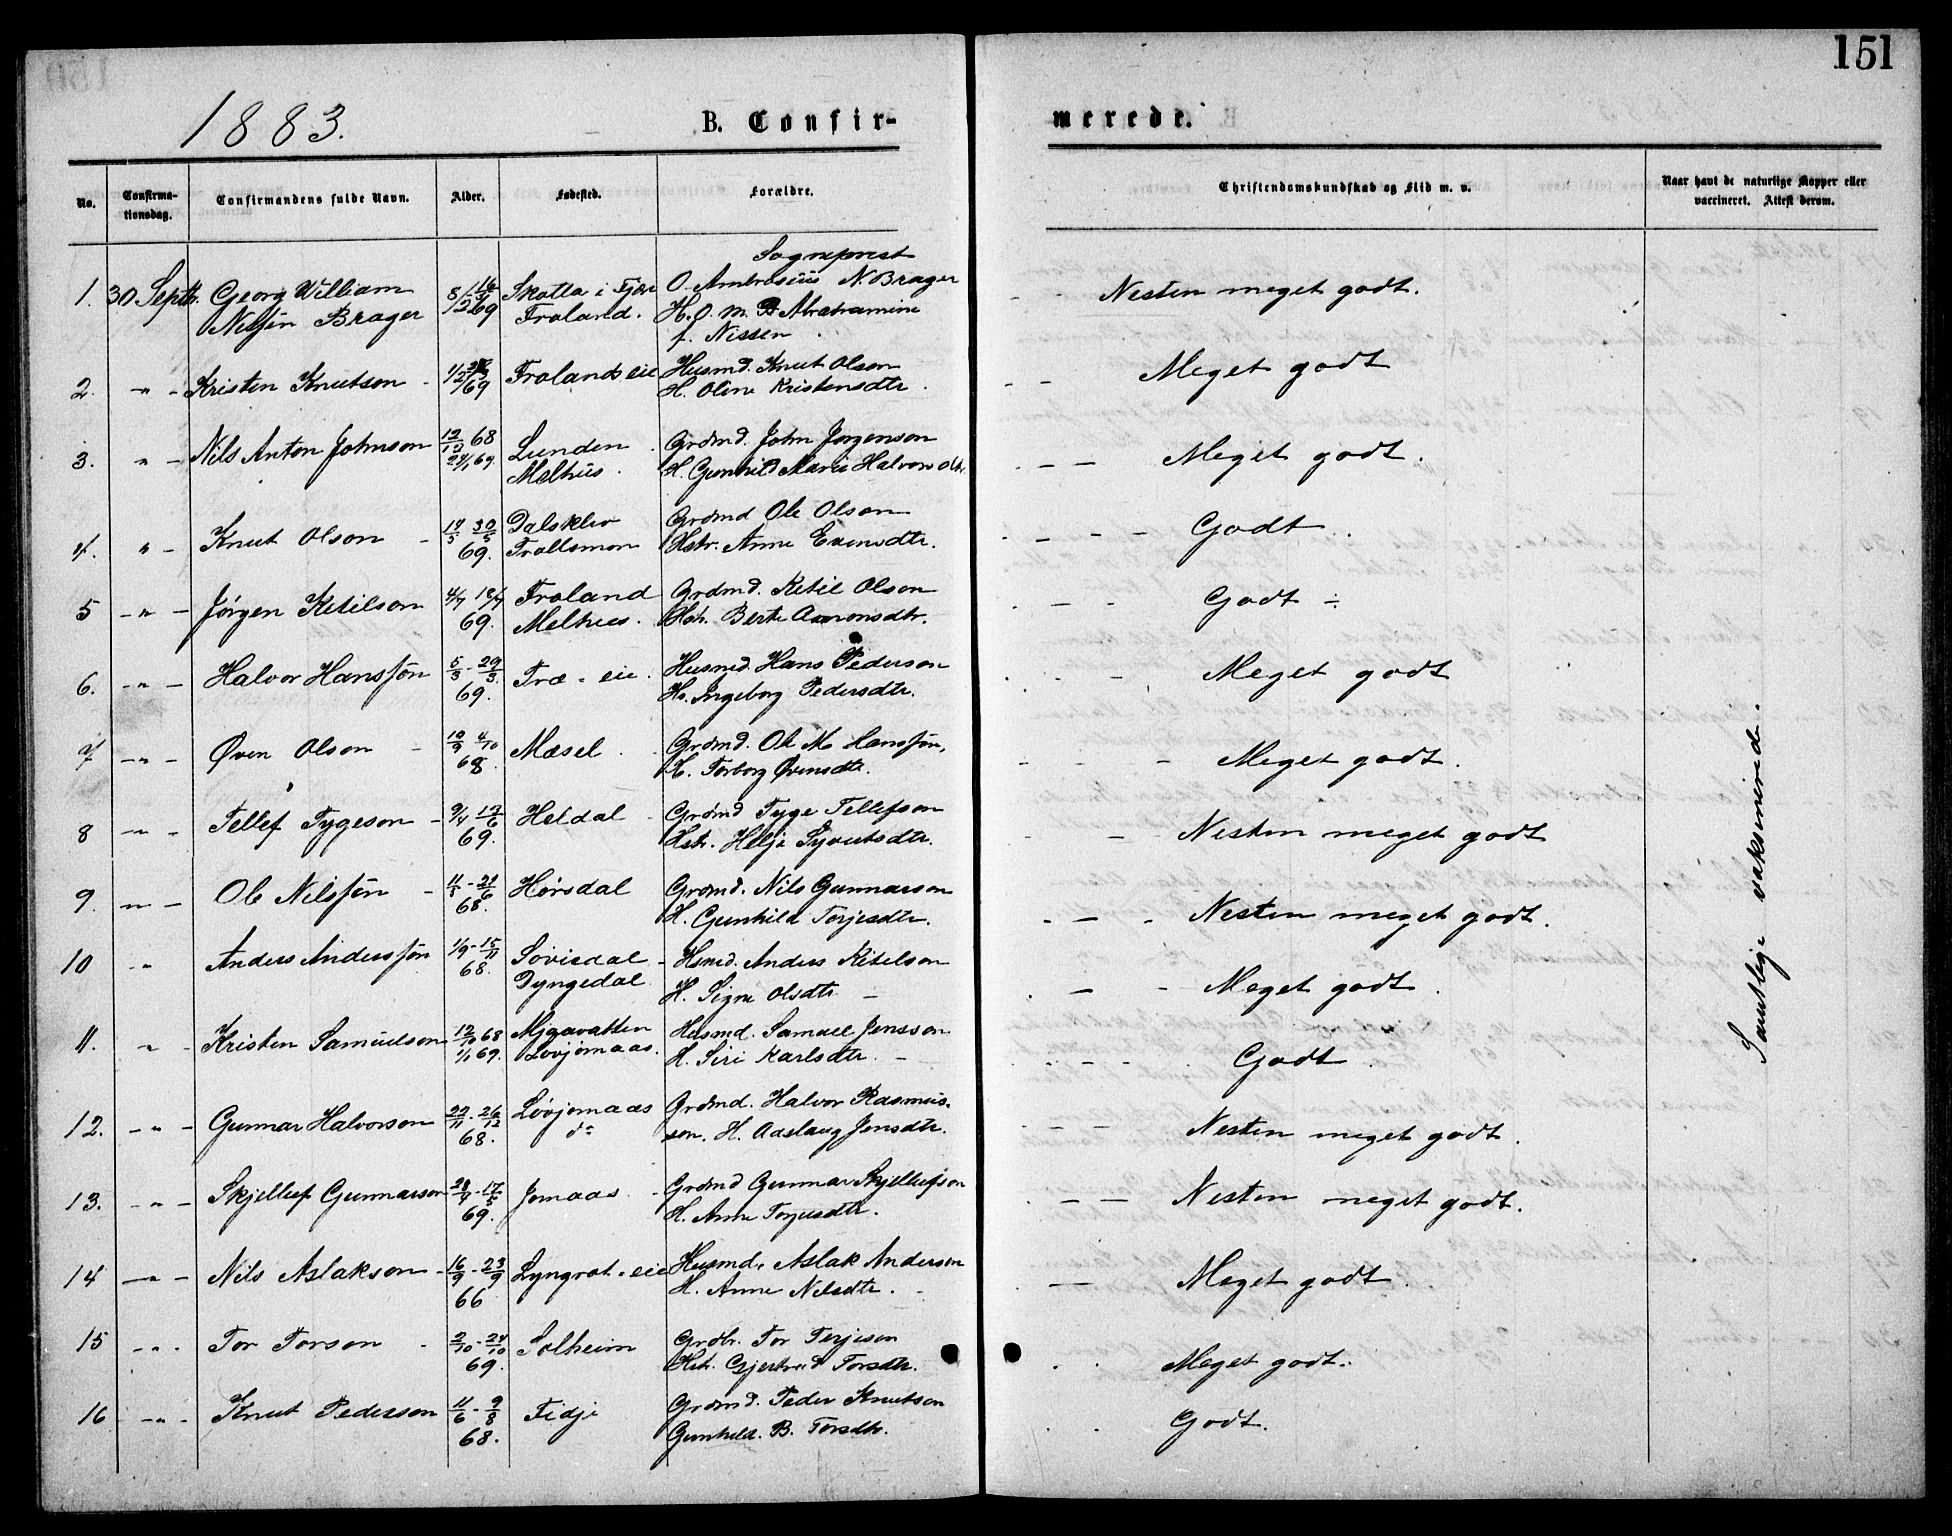 151
1883.
B. Confir-
merede.
No.
Confirma-
tionsdag.
Confirmandens fulde Navn.
Alder.
Fødested.
Forældre.
Christendomskundskab og Flid m. v.
Naar havt de naturlige Kopper eller
vaccineret. Attest derom.
Sogneprest
1. 30 Septb. Georg William Skatta i O. Ambrosius N. Brager Nesten meget godt.
Nilsjön Brager Froland. H. O. M. Abrahamine
f. Nissen
2. " Kristen Knutson Frolands eie Husmd. Knut Olson Meget godt
69 H. Oline Kristensdtr.
3. " Nils Anton Johnson 12/12 68 Lunden Grdmd. John Jörgenson Meget godt.
24/1 69. Melhus. H. Gunhild Marie Halvorsdtr.
4. " Knut Olson Dalskler Grdmd Ole Olson Godt
69. Trollsmon Hstr. Anne Evensdtr.
5 " Jörgen Ketilson 4/7 18/7 Froland Grdmd. Ketil Olson Godt ÷
69. Melhus. Hstr. Berte Aaronsdtr.
6. " Halvor Hansjön 5/3 - 29/3 Træ - eie. Husmd. Hans Pederson Meget godt
69. H. Ingeborg Pedersdtr.
7 " Øven Olson 10/9 4/10 Mæsel Grdmd. Ole M. Hansjön, Meget godt.
68 H. Torborg Øvensdtr.
8 " Tellef Tygeson 9/4 13/6 Heldal Grdmd Tyge Tellefson Nesten meget godt
69. Hstr. Helje Syvertsdtr.
9. " Ole Nilsjön - 21/6 Hörsdal Grdmd. Nils Gunnarson Nesten meget godt.
68. H. Gunhild Torjesdtr.
10 " Anders Andersjön 1/9 - 15/11 Lövisdal Hsmd. Anders Ketelson Meget godt
68. Dyngedal. H. Signe Olsdtr
11. " Kristen Samuelson 12/10 68 Mjaavatten Husmd. Samuel Jensson Godt
1/1 69. Lövjomaas. H. Siri Karlsdtr.
12. " Gunnar Halvorson 22/11 - 26/12 Lövjomaas Grdmd. Halvor Rasmus- Nesten meget godt.
68. do son. H. Aaslaug Jensdtr.
13. " Skjellef Gunnarson 28/4 - 17/5 Jomaas Grdmd Gunnar Skjellefson Nesten meget godt.
69. H. Anne Torjusdtr.
14 " Nils Aslakson 16/9 - 23/9 Lyngrot - eie Husmd. Aslak Anderson Meget godt
66 H. Anne Nilsdtr.
15 " Tor Torson 2/10 - 24/10 Solheim Grdbr. Tor Terjeson Meget godt.
69. Hstr. Gjertrud Torsdtr.
16 " Knut Pederson 11/6 - 9/8 Fidje Grdmd. Peder Knutson Godt.
68. Gunhild. B. Torsdtr.
Samtlige vaksinerede.